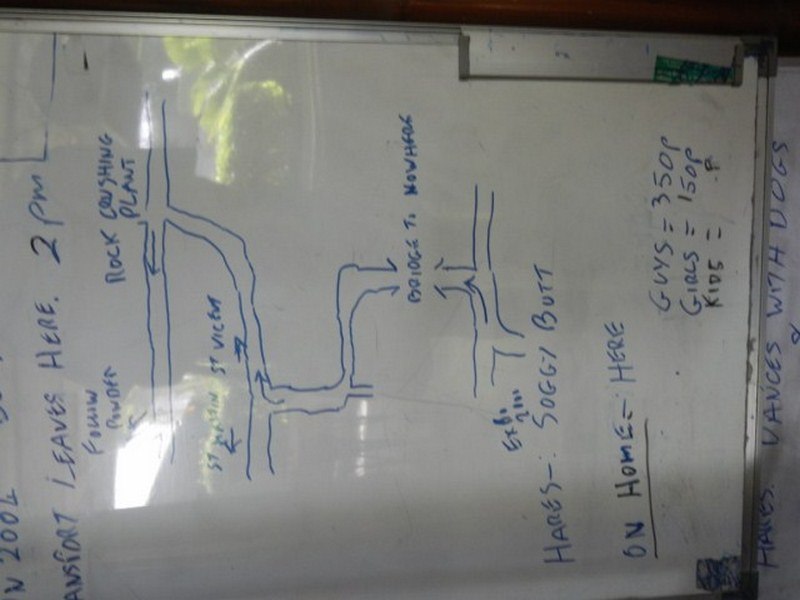 TRANSPORT LEAVES HERE. 2 pm
ROCK CRUSHING
PLANT
FOLLOW
POWDER
ST VICENT
BRIDGE TO NOWHERE
HARES-: SOGGY BUTT
ON HOME-: HERE
GUYS = 350P
GIRLS = 150P
KIDS =
HARES. VANCES WITH DOGS